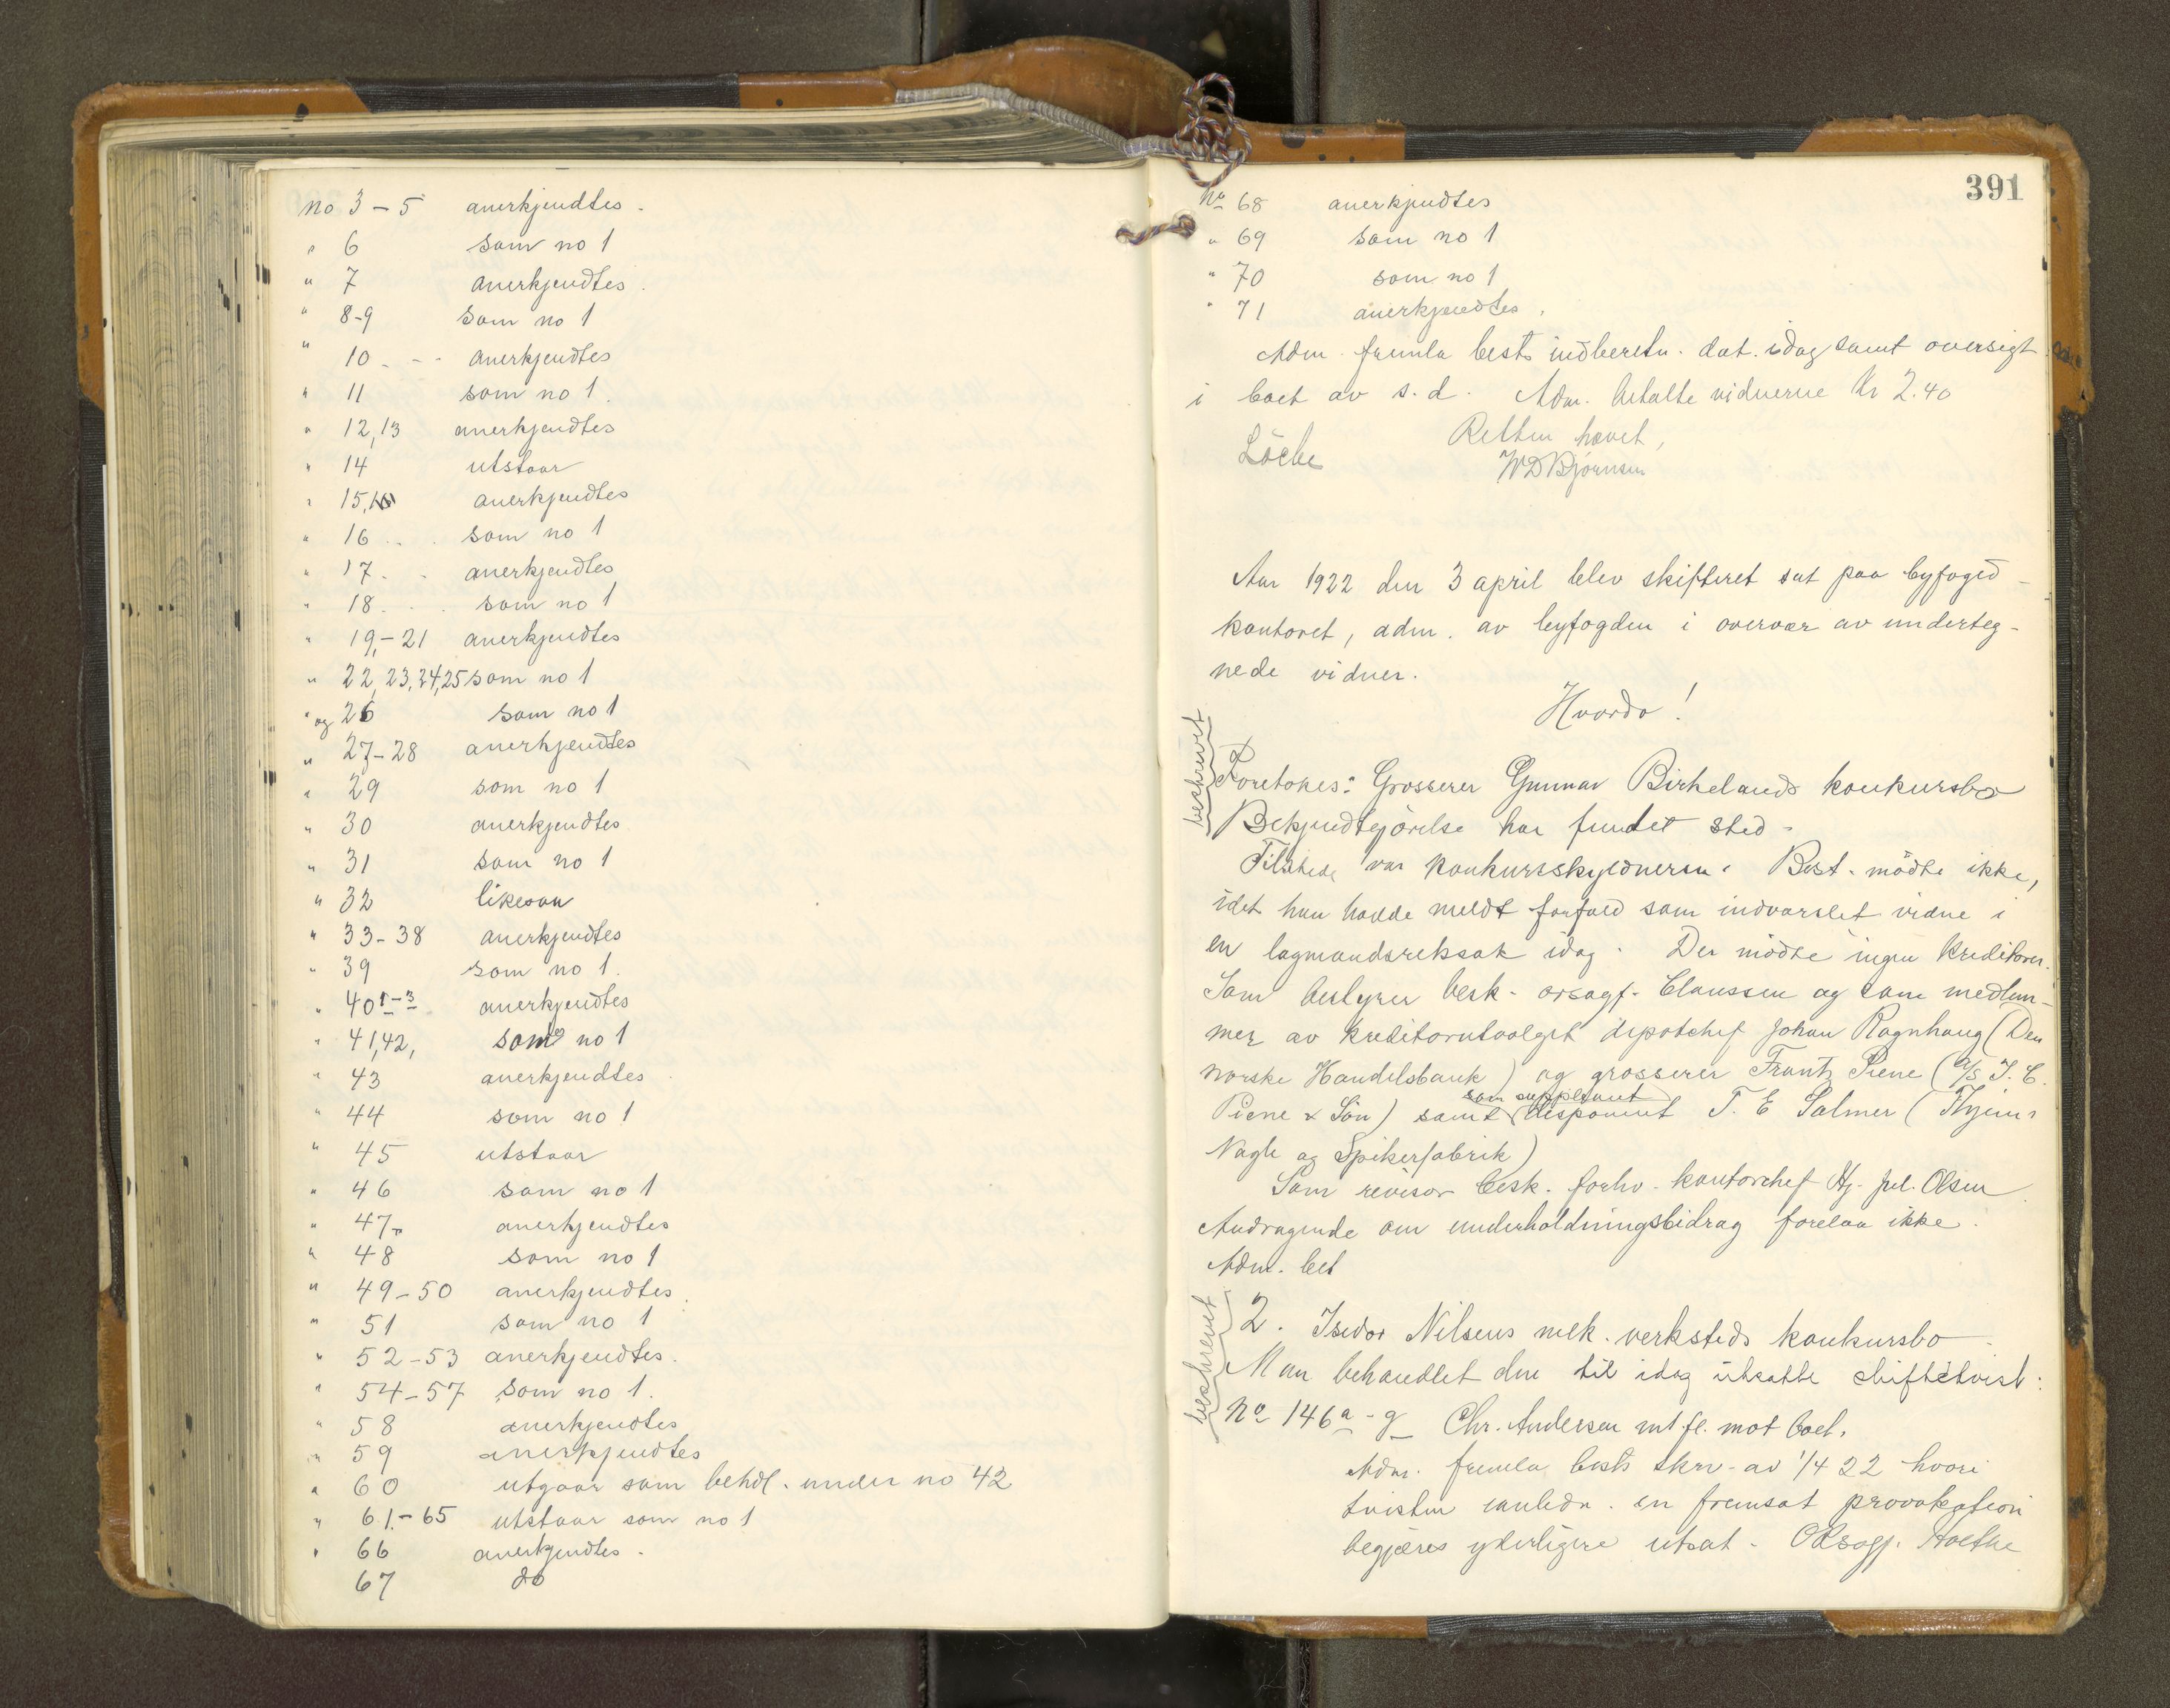 no 3-5 anerkjendtes.
" 6 som no 1
" 7 anerkjendtes.
" 8-9 som no 1
" 10 - - anerkjendtes
" 11 som no 1.
" 12,13 anerkjendtes
" 14 utstaar
" 15, anerkjendtes
" 16 . . som no 1
" 17. . anerkjendtes
" 18. . . som no 1
" 19,-21 anerkjendtes
" 22, 23, 24, 25 som no 1
" og 26 som no 1
" 27-28 anerkjendtes
" 29 som no 1
" 30 anerkjendtes
" 31 som no 1
" 32 likesaa
" 33-38 anerkjendtes
" 39 som no 1.
" 40 1-3 anerkjendtes
" 41,42, som no 1
" 43 anerkjendtes
" 44 som no 1
" 45 utstaar
" 46 som no 1
" 47 anerkjendtes
" 48 som no 1
" 49-50 anerkjendtes.
" 51 som no 1
" 52-53 anerkjendtes.
" 54-57 som no 1.
" 58 anerkjendtes
" 59 anerkjendtes
" 60 utgaar som behdl. under no 42
" 61.-65 utstaar som no 1
" 66 anerkjendtes.
67 do
391
No 68 anerkjendtes
" 69 som no 1
" 70 som no 1
" 71 anerkjendtes.
Adm. fremla bests indberetn. dat. idag samt oversigt
i boet av s. d. Adm. betalte vidnerne Kr 2.40
Retten hævet,
WDBjørnsen
Aar 1922 den 3 april blev skifteret sat paa byfoged-
kontoret, adm. av byfogden i overvær av underteg-
nede vidner.
Hvorda!
beskrevet
Foretokes: Grosserer Gunnar Birkelands konkursbo
Bekjendtgjörelse har fundet sted -
Tilstede var konkursskyldneren. Best. mödte ikke,
idet han hadde meldt forfald som indvarslet vidne i
en lagmandsretssak idag. Der mödte ingen kreditorer.
Som bestyrer besk. orsagf. Claussen og som medlem-
mer av kreditorutvalget depotchef Johan Ragnhaug (Den
norske Handelsbank) og grosserer Frantz Piene (A/S I. C.
Piene & Sön) samt som suppleant disponent T. E Salmer (Thjems
Nagle og Spikerfabrik)
Som revisor besk. forhv. kontorchef Hj. Jul. Olsen
Andragende om underholdningsbidrag forelaa ikke.
Adm. bet
beskrevet
2. Isidor Nilsens mek. verksteds konkursbo
Man behandlet den til idag utsatte skiftetvist:
No 146 a-g Chr. Andersen mt. fl. mot boet.
Adm. fremla bests skrv. av 1/4 22 hvori
tvisten anledn. en fremsat provokation
begjæres yderligere utsat.